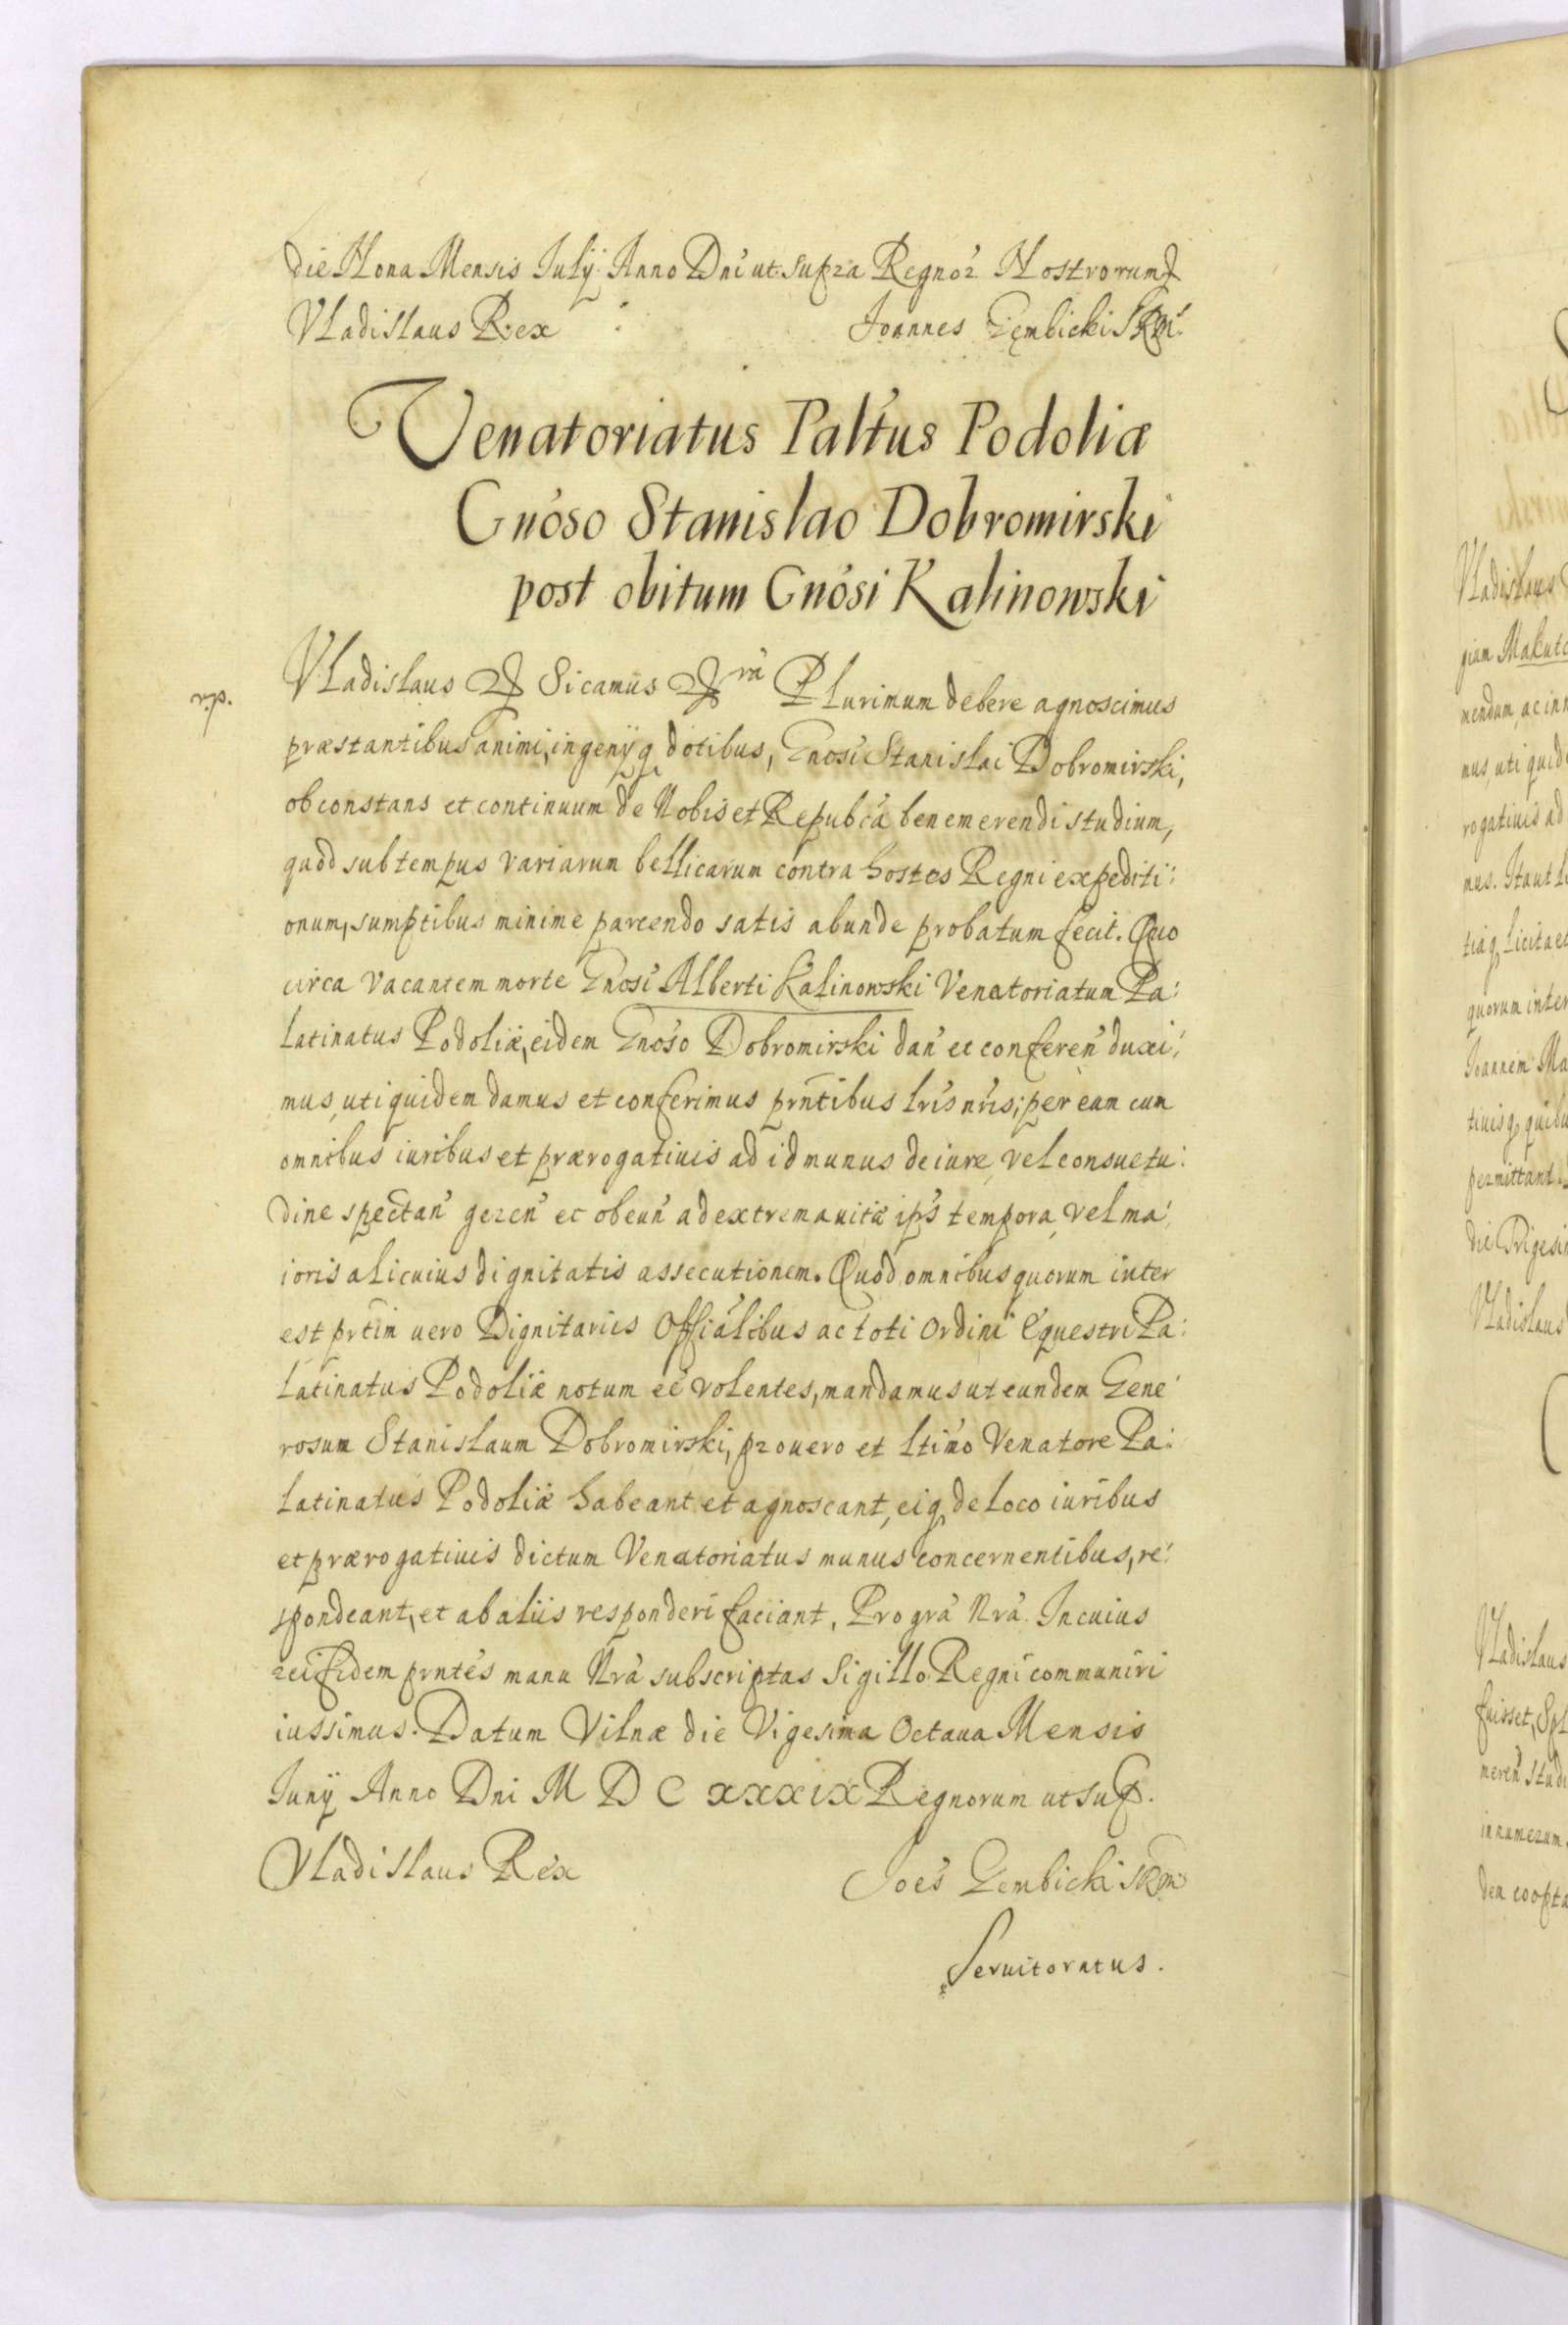 die Nona Mensis Iulÿ Anno Dni ut supra Regnor Nostrorum
Vladislaus Rex Joannes Gembicki SRM.
Venatoriatus Paltus Podoliæ
Gnoso Stanislao Dobromirski
post obitum Gnosi Kalinowski
Vladislaus Sicamus Plurimum debere agnoscimus
præstantibus animi, ingenÿq dotibus, Gnosi Stanislai Dobromirski,
ob constans et continuum de Nobis et Repubca bene merendi studium,
quod sub tempus variarum bellicarum contra hostes Regni expediti:
onum, sumptibus minime parcendo satis abunde probatum fecit. Quo
circa vacantem morte Gnosi Alberti Kalinowski Venatoriatum Pa:
latinatus Podoliæ, eidem Gnoso Dobromirski dan et conferen duxi:
mus, uti quidem damus et conferimus prntibus lris nris; per eun cum
omnibus iuribus et prærogatiuis ad id munus de iure vel consuetu:
dine spectan geren et obeun ad extrema uitæ ips tempora, vel ma:
ioris alicuius dignitatis assecutionem. Quod omnibus quorum inter
est prtim uero Dignitariis Offialibus ac toti Ordini Equestri Pa:
latinatus Podoliæ notum eē volentes, mandamus ut eundem Gene:
rosum Stanislaum Dobromirski, pro uero et ltimo Venatore Pa:
latinatus Podoliæ habeant et agnoscant, eiq de loco iuribus
et prærogatiuis dictum Venatoriatus munus concernentibus, re:
spondeant, et ab aliis responderi faciant, Pro gra Nra. In cuius
rei fidem prntes manu Nra subscriptas Sigillo Regni communiri
iussimus. Datum Vilnæ die Vigesima Octaua Mensis
Iunÿ Anno Dni M D C XXXIX Regnorum ut sup.
Vladislaus Rex Joes Gembicki SRM
Seruitoratus.